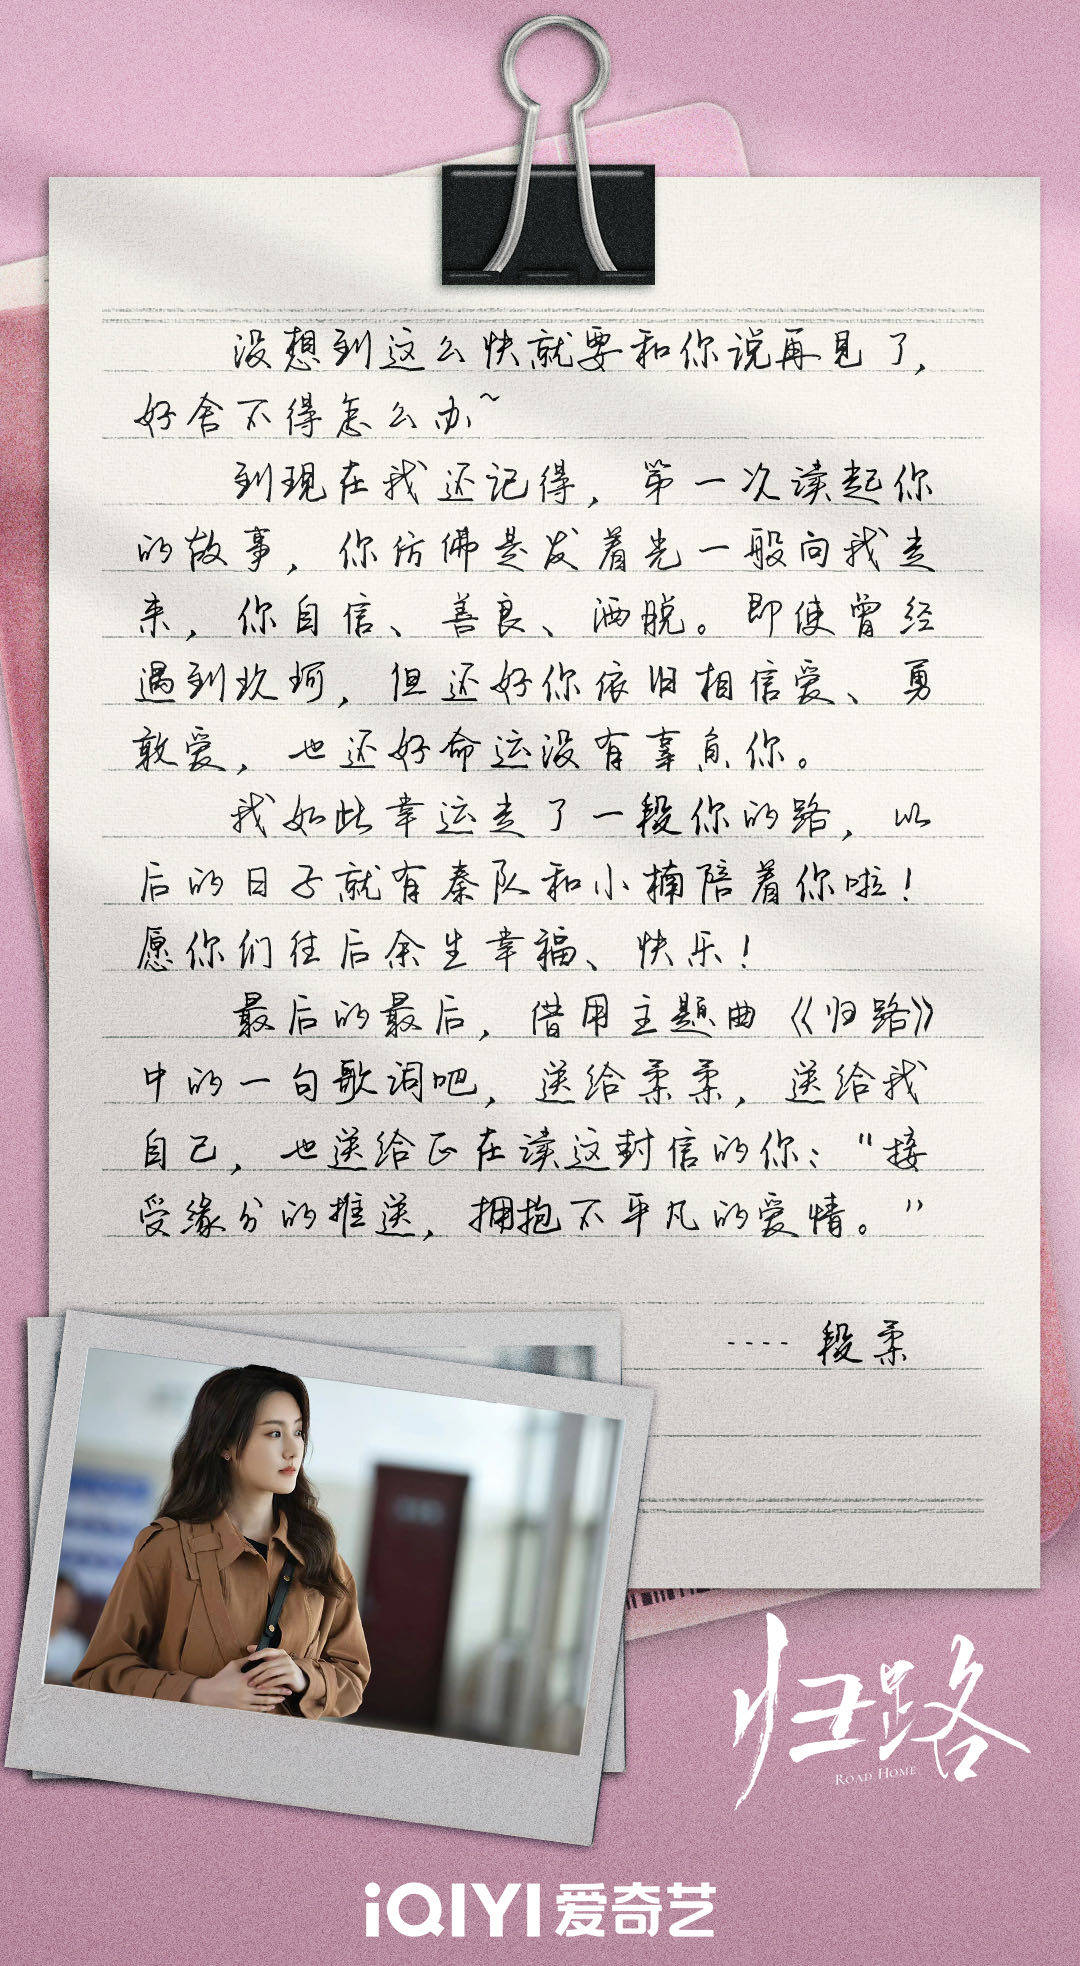 没想到这么快就要和你说再见了,
好舍不得怎么办~
到现在我还记得, 第一次读起你
的故事, 你仿佛是发着光一般向我走
来, 你自信、善良、洒脱。即使曾经
遇到坎坷, 但还好你依旧相信爱、勇
敢爱, 也还好命运没有辜负你。
我如此幸运走了一段你的路, 以
后的日子就有秦队和小楠陪着你啦!
愿你们往后余生幸福、快乐!
最后的最后, 借用主题曲《归路》
中的一句歌词吧, 送给柔柔, 送给我
自己, 也送给正在读这封信的你: "接
受缘分的推送, 拥抱不平凡的爱情。"
---- 段柔
归路
ROAD HOME
iQIYI 爱奇艺